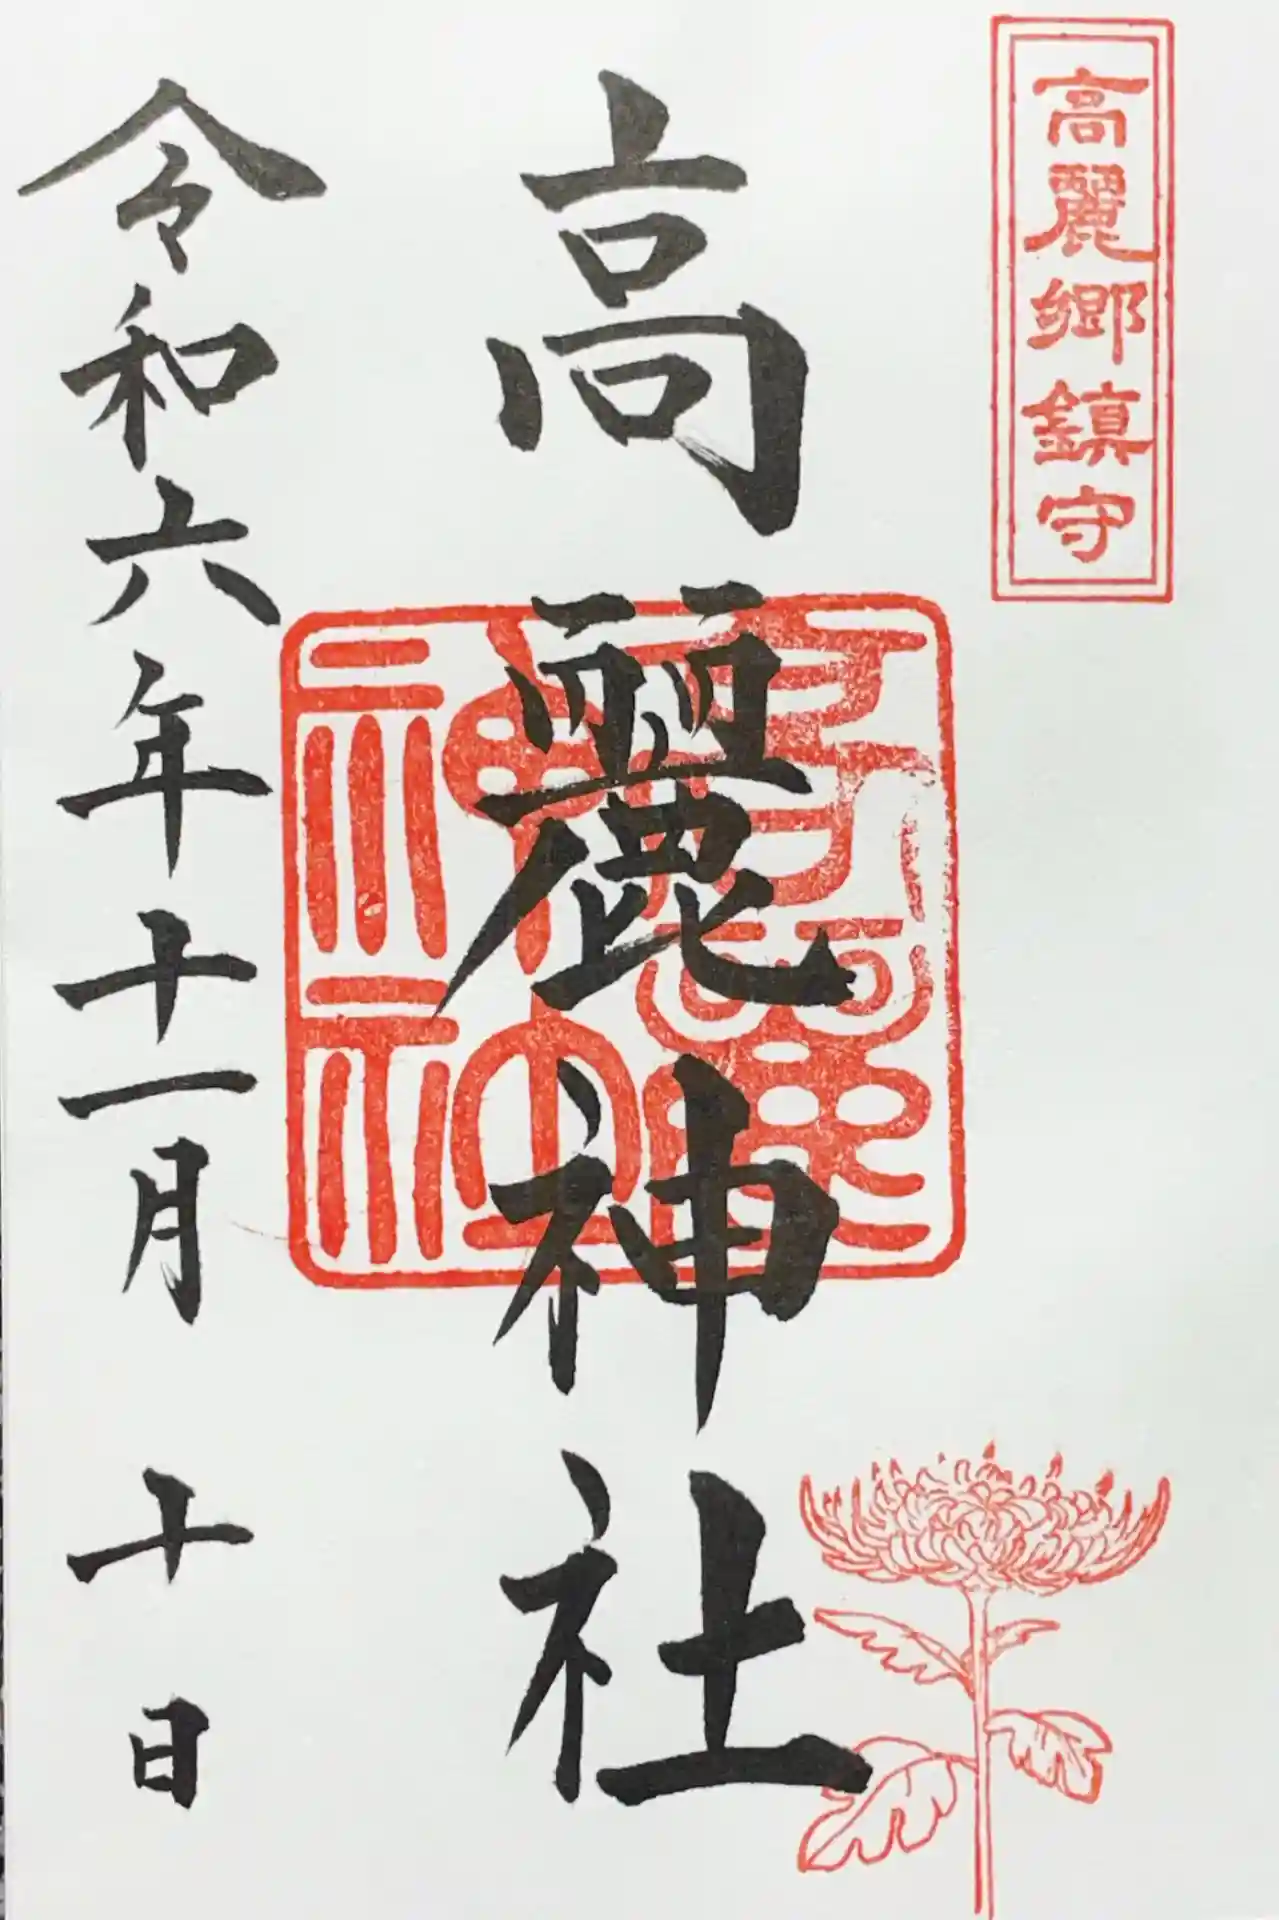 高麗郷鎮守
高麗神社
令和六年十一月十日